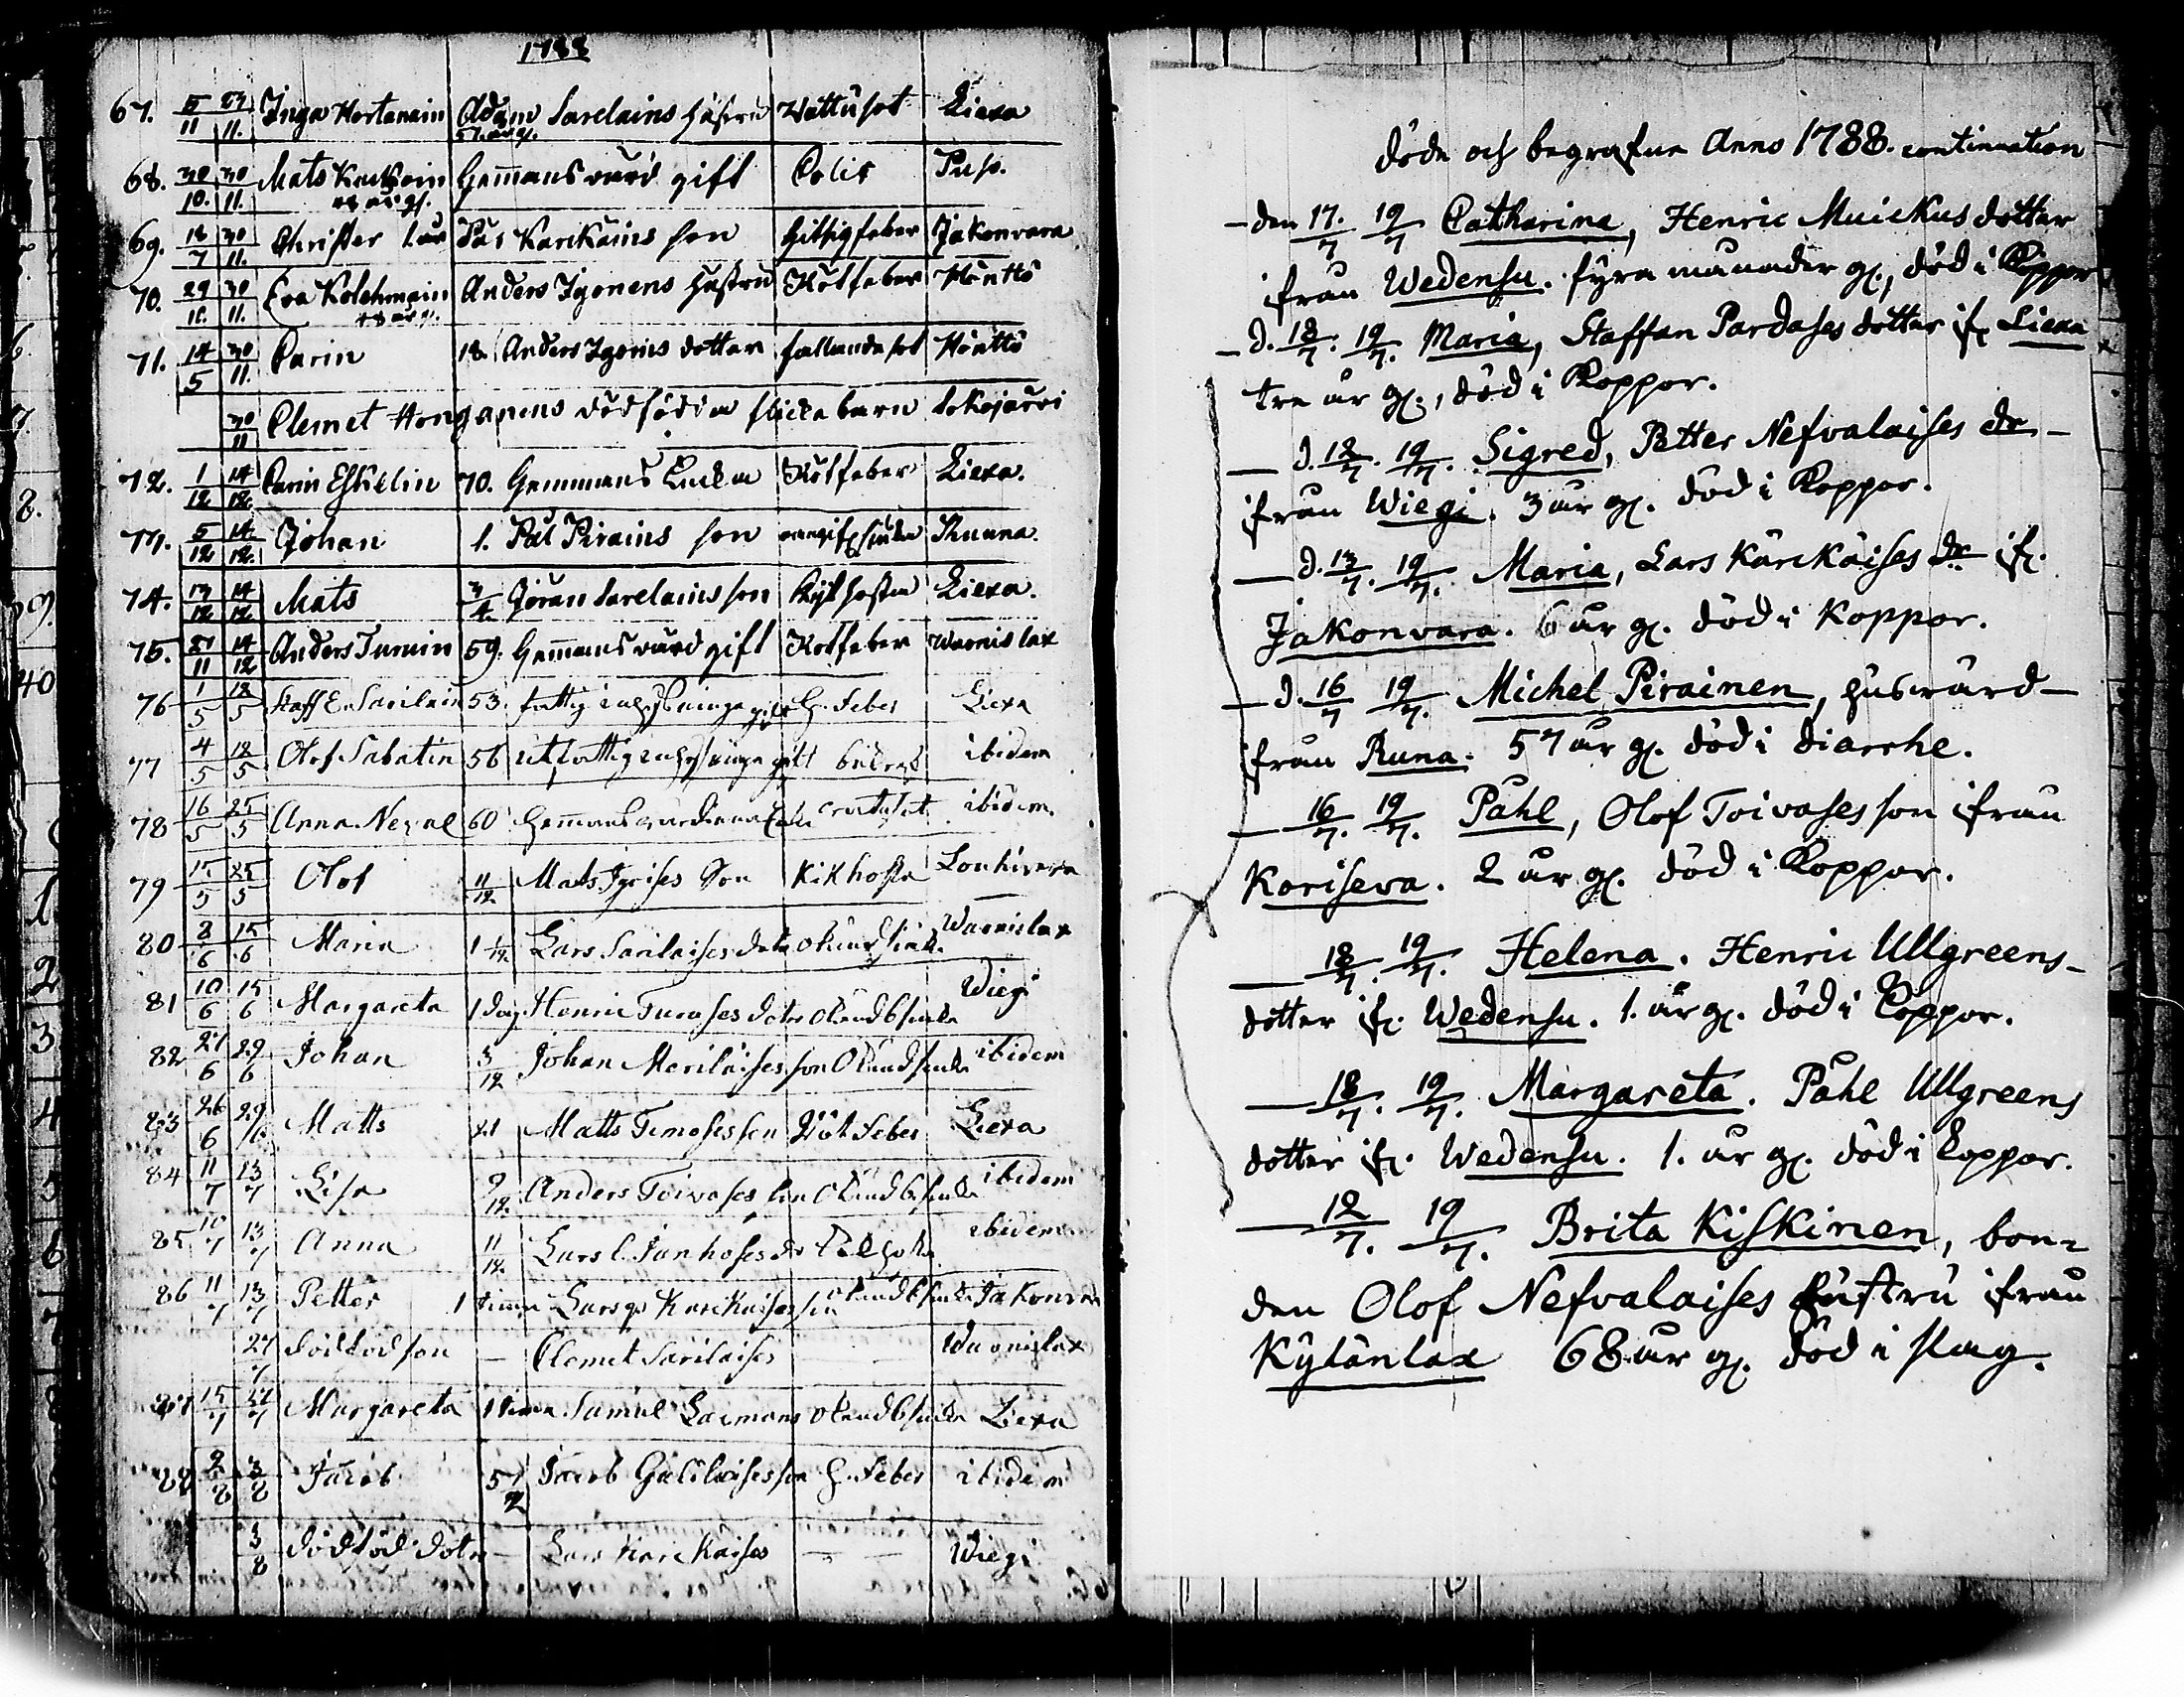 1788
67. 5/11 23/11. Inga Hortanain Adam Sarelains hustru Wattusot Liexa
57. år g.
68. 30/10. 30/11. Mats Hemmans wärd gift Colik
69. 18/7 30/11. Christer Pås Karikains son hitsigfeber Jakonwara
70. 29/11. 30/11. Eva Kolehmain Anders Igonens hustru Rötfeber Hönttö
48 år g.
71. 14/5 30/11. Carin 18. Anders Igoins dotter fallandesot Hönttö
30/11 Clemet Honganens dödfödda flicka barn Sokojärvi
72. 1/12 14/12. Carin Eskelin 70. Hemmans Enkia Rötfeber Liexa.
73. 5/12 14/12. Johan 1. Pål Pirains son Ruuna.
74. 13/12 14/12 Mats 3/4 Jöran Sarelains son Kikhosta Liexa.
75. 27/11 14/12 Anders Turuin 59. Hemmans wärd gift Rötfeber Warnislax
76 1/5 12/5 Staff E. Sarilain 53. fattig inhysinge gift H. feber Liexa
77 4/5 12/5 Olof Sabatin 56 utfattig inhysinge gift ibidem
78 16/5 25/5 Anna Neval 60 Hemmanswärdinna Enka ibidem.
79 15/5 25/5 Olof 11/12 Mats Igoises Son Kikhosta
80 8/6 15/6 Maria 1 Lars Sarilaises doter okiend siuka Warnislax
81 10/6 15/6 Margareta 1 dag Henric Turuses doter okiend siuka Wiegi
82 27/6 29/6 Johan 3/12 Johan Merilaises son Okiend siuka ibidem
83 26/6 29/6 Matts 21 Matts Timoses son Röt feber Liexa
84 11/7 13/7 Lisa 9/12. Anders Toivoses Okiend siuka ibidem
85 10/7 13/7 Anna 11/12. Lars C. Janhoses dr ibidem
86 11/7 13/7 Petter 1 timma Lars Karikaises son okiend siuka Jakonvara
27/7 dödföd son — Clemet Sarilaises — — Warnislax
87 15/7 27/7 Margareta 1 timma Samul Laemans okiend siuka Liexa
88 2/8 3/8 Jacob 57/12 Jacob Gälilaises son H. feber ibidem
3/8 dödföd dotr — Lars Karikaises — — Wiegi
döde och begrafne Anno 1788. continuation
— den 17./7 19/7 Catharina, Henric Muickus dotter
ifrån Wedensu. fyra månader gl., död i Koppor
— d. 18/7. 19/7. Maria, Staffan Pardases dotter if. Liexa
tre år gl., död i Koppor.
— d. 12/7. 19/7. Sigred, Petter Nefvalaises dr —
ifrån Wiegi. 3 år gl. död i Koppor.
— d. 13/7. 19/7. Maria, Lars Kärckäises dr if.
Jakonvara. 6 år gl. död i Koppor.
— d. 16/7 19/7. Michel Pirainen, huswärd —
ifrån Runa. 57 år gl. död i diarrhe.
— 16/7. 19/7. Påhl, Olof Toivoses son ifrån
Koriseva. 2 år gl. död i Koppor.
— 18/7. 19/7. Helena. Henric Ullgreens —
dotter if. Wedensu. 1. år gl. död i Koppor.
— 18/7. 19/7. Margareta. Påhl Ullgreens
dotter if. Wedensu. 1. år gl. död i Koppor.
— 12/7. 19/7. Brita Kiskinen, bon=
den Olof Nefvalaises hustru ifrån
Kylänlax 68 år gl. död i slag.